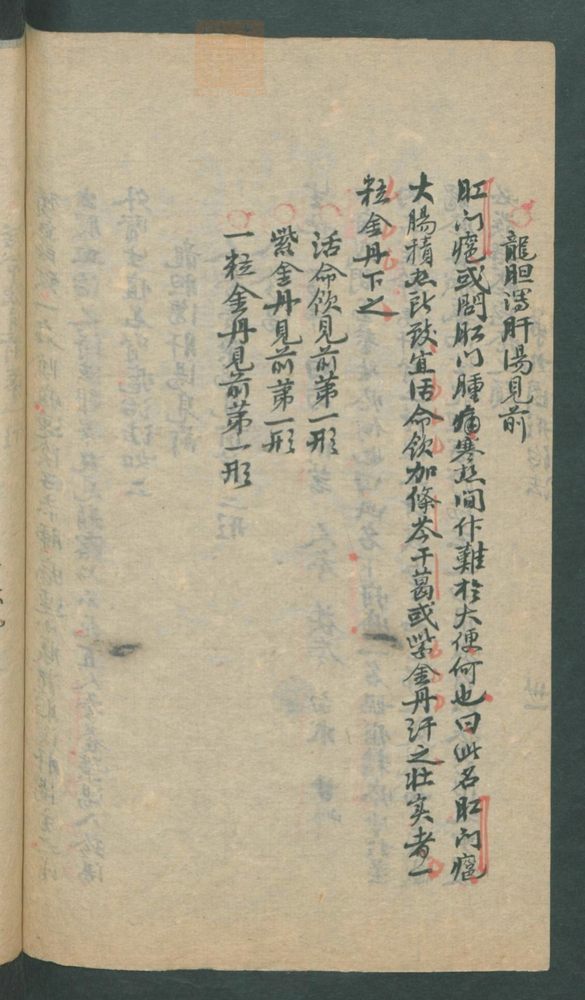 龍胆瀉肝湯見前
肛門癰或問肛門腫痛寒热间作難於大便何也曰此名肛门癰
大腸積热所致宜活命飲加條芩干葛或紫金丹汗之壮实者一
粒金丹下之
活命飲見前第一形
紫金丹見前第一形
一粒金丹見前第一形